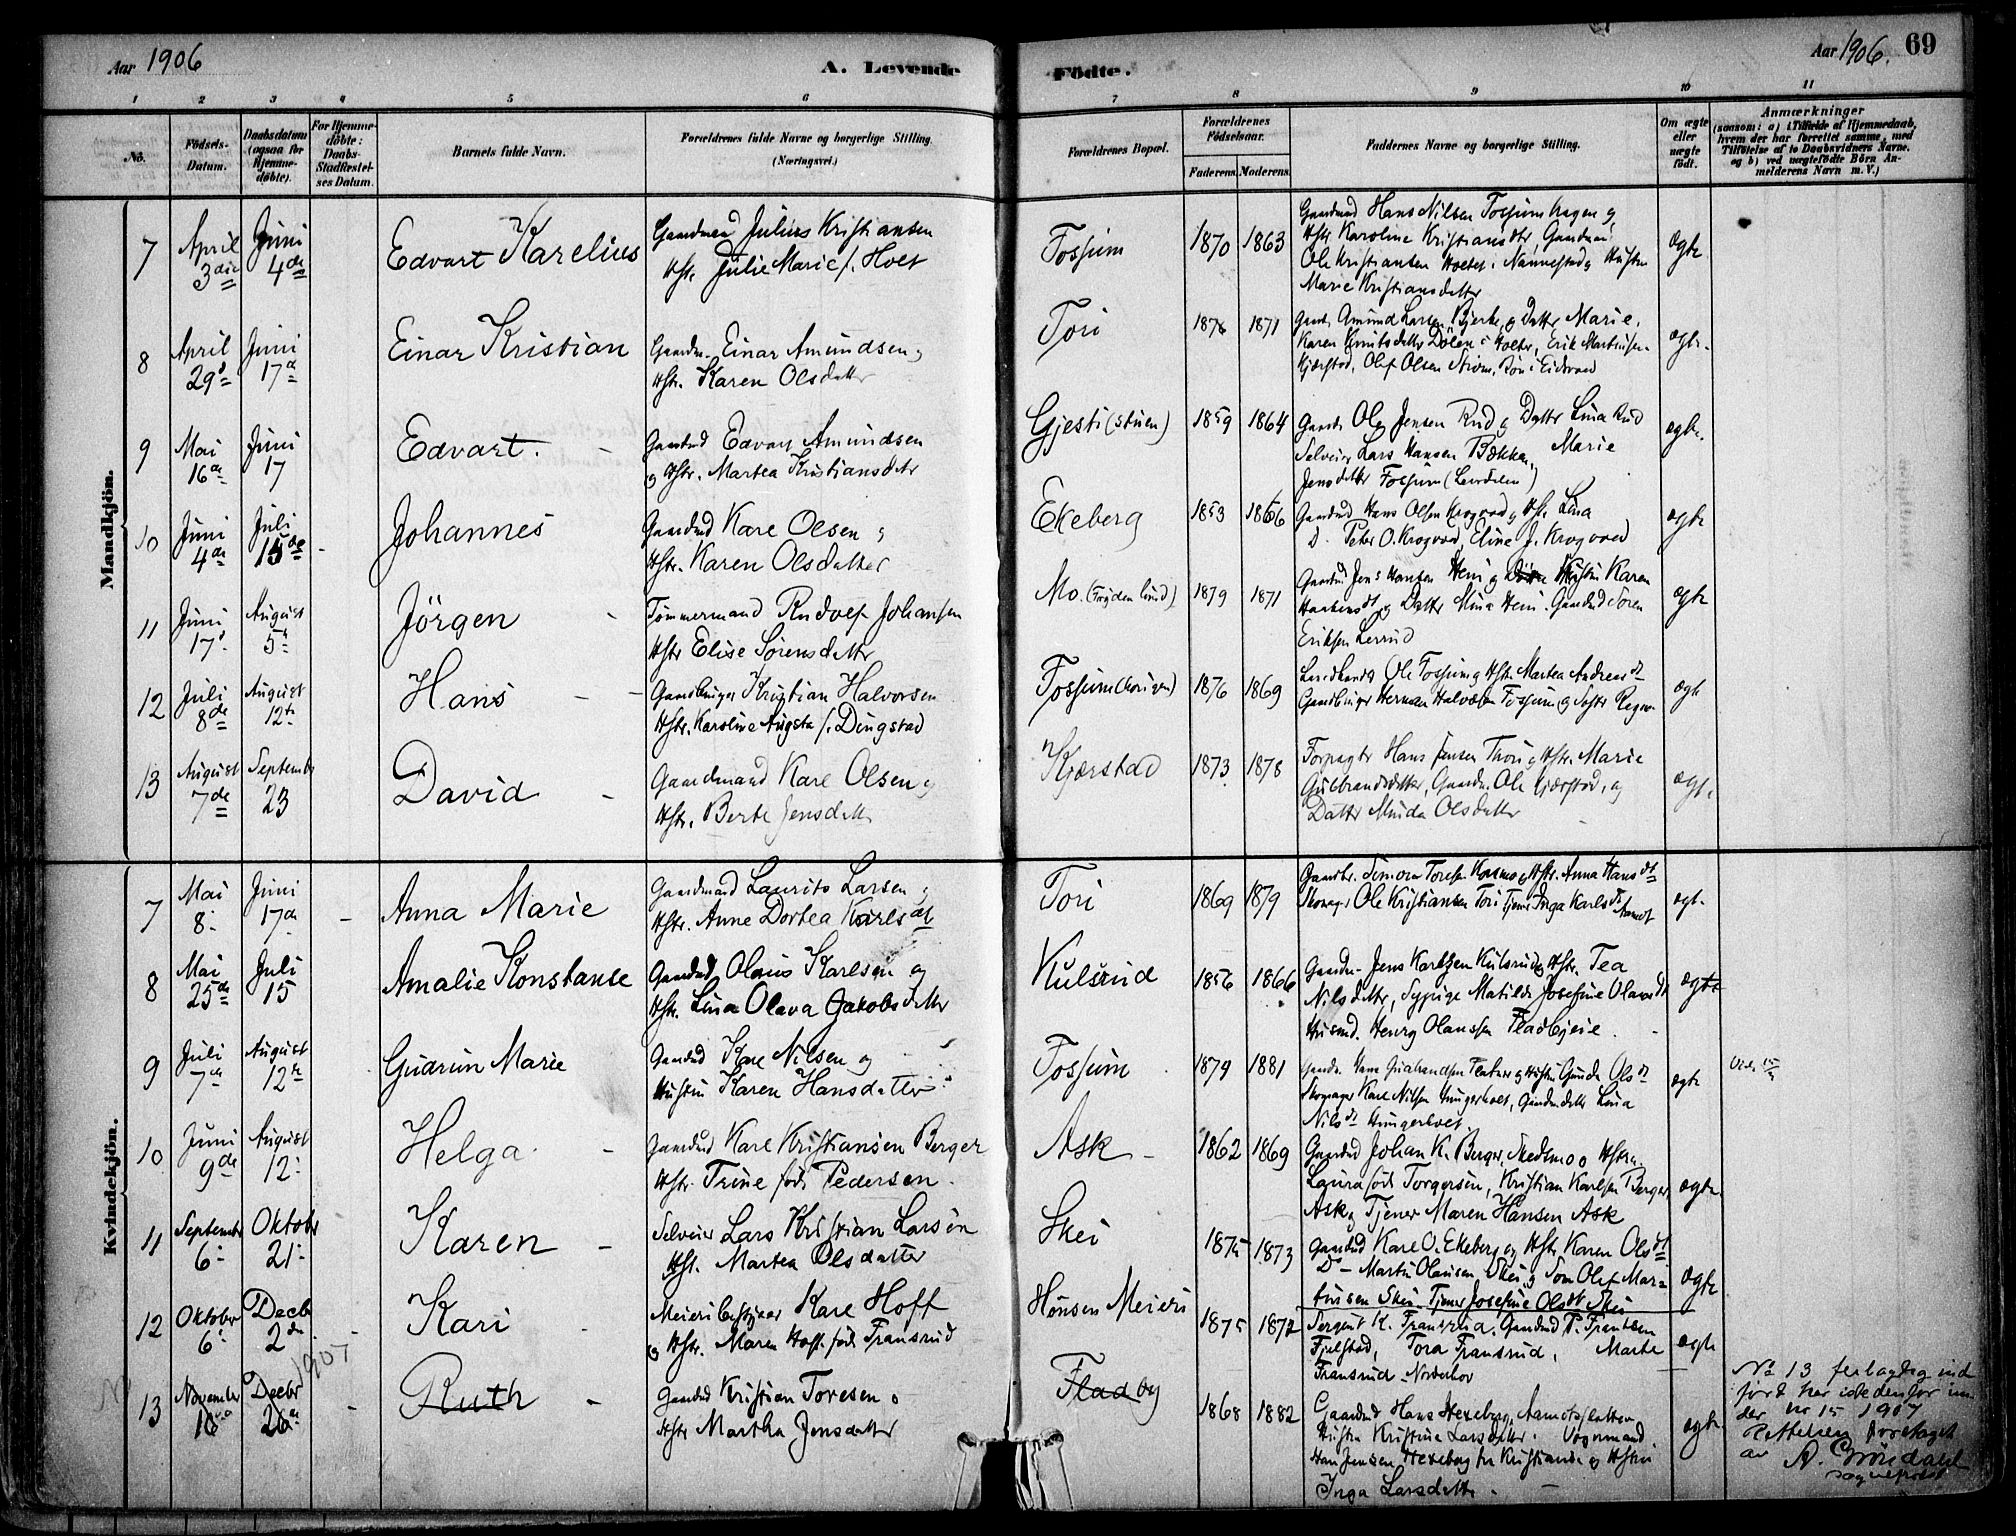 Aar 1906
A. Levende
Födte.
Aar 1906.
69
1 2 3 4 5 6 7 8 9 10 11
No.
Födsels-
Datum.
Daabsdatum
(ogsaa for
Hjemme-
döbte).
For Hjemme-
döbte:
Daabs-
Stadfæstel-
ses Datum.
Barnets fulde Navn.
Forældrenes fulde Navne og borgerlige Stilling.
(Næringsvei.)
Forældrenes Bopæl.
Forældrenes
Födselsaar.
Faderens. Moderens.
Faddernes Navne og borgerlige Stilling.
Om ægte
eller
uægte
födt.
Anmærkninger
(saasom: a) i Tilfælde af Hjemmedaab,
hvem der har forrettet samme, med
Tilföielse af to Daabsvidners Navne.
og b) ved uægtefödte Börn An-
melderens Navn m. V.)
Mandkjön.
7
April
3die
Juni
4de
Edvart Karelius
Gaardmd Julius Kristiansen
Hstr. Julie Marie f. Holt
Fossum
1870 1863
Gaardmd Hans Nilsen Fossumhagen og
Hstr Karoline Kristiansdtr, Gaardmd
Ole Kristiansen Holter i Nannestad og Hustru
Marie Kristiansdatter
ægte
8
April
29d
Juni
17d
Einar Kristian
Gaardm. Einar Amundsen og
Hstr. Karen Olsdatter
Tori
1871
Gaardm. Amund Larsen Bjerke og Datter Marie,
Karen Knutsdatter Dølen i Holter, Erik Martinsen
Kjærstad, Olef Olsen Strøm, i Eidsvold
ægte
9
Mai
16de
Juni
17
Edvart.
Gaardmd Edvart Amundsen
og Hstr. Martea Kristiansdatr
Gjesti (stuen)
1859 1864
Gaardm. Ole Jensen Rud og Datter Lina Rud
Selveier Lars Hansen Bækken, Marie
Jensdatter Fossum
ægte.
10
Juni
4de
Juli
15de
Johannes
Gaardmd Karl Olsen og
Hstr. Karen Olsdatter
Ekeberg
1853 1866
Gaardmd Hans Olsen Krogvad og Hstr. Lina
D. Peter O. Krogvad, Eline J. Krogvad
ægte
11
Juni
17d
August
5te
Jörgen
Tømmermand Rudolf Johansen
Hstr Elise Sørensdatter
Mo.
1879 1871
Gaardmd Jens Hansen Heni og Hustru Karen
og Datter Mina Heni. Gaardmd Soren
Eriksen Lerrud
ægte
12
Juli
8de
August
12te
Hans
Gaardbruger Kristian Halvorsen
Hstr. Karoline Augusta f. Dingstad
Fossum
1876 1869
Landhandl. Ole Fossum og Hstr Martea Andreasdt
Gaardbruger Herman Halvorsen Fossum og Søster
ægte
13
August
7de
September
23
David
Gaardmand Karl Olsen og
Hstr. Berte Jensdatter
Kjærstad
1873 1878
Forpagter Hans Jensen Thori og Hstr. Marie
Gulbrandsdatter, Gaardm. Ole Kjærstad, og
Datter Minda Olsdatter
ægte
Kvindekjön.
7
Mai
8
Juni
17de
Anna Marie
Gaardmand Laurits Larsen og
Hstr. Anne Dortea Karlsdt
Tori
1869 1879
Hstr. Anna Hansdt
Skomager Ole Kristiansen Tori Tjener Inga Karlsdt
ægte
8
Mai
25de
Juli
15
Amalie Konstanse
Gaardmd Olaus Karlsen og
Hstr. Lina Olava Jakobsdatter
Kulsrud
1856 1866
Gaardm. Jens Karlsen Kulsrud og Hstr. Tea
Nilsdatter, Sypige Matilde Josefine Olausdt
Husmd. Henry Olaussen Fladbyeie.
ægte
9
Juli
7de
August
12te
Gudrun Marie
Gaardmd Karl Nilsen og
Hustru Karen Hansdatter
Fossum
1879 1881
Gaardm. Hans og Hustru Gunda Olsdt
Skomager Karl Nilsen Hungerholt, Gaardm.datter Lina
Nilsdt Hungerholt.
ægte
10
Juni
9de
August
12
Helga.
Gaardmd Karl Kristiansen Berger
Hstr. Trine født Pedersen.
Ask
1862 1869
Gaardmd Johan K. Berger, Skedsmo og Hstru.
Laura født Torgersen, Kristian Karlsen Berger,
Ask og Tjener Maren Hansen Ask
ægte
11
September
6
Oktober
21
Karen
Selveier Lars Kristian Larsen
Hstr. Martea Olsdatter
Skei
1875 1873
Gaardmd Karl O. Ekeberg og Hstr Karen Olsdt
Do Martin Olausen Skei og Søn Olef Mar-
tinsen Skei. Tjener Josefine Olsdt Skei
ægte
12
Oktober
6
Decbr
2den
Kari
Meieribestyrer Karl Hoff
og Hstr. Maren Hoff født Fransrud
Hønsen Meieri
1875 1872
Sergent K. Fransrud. Gaardmd P. Frantsen
Fjelstad, Tora Fransrud, Marte
Fransrud Norderhov
ægte
13
November
16
Decbr
26de
1907
Ruth
Gaardmd Kristian Toresen og
Hstr Martha Jensdatter
Fladby
1868 1882
Gaardmd Hans Hexeberg,
Hustru Kristine Larsdatter. Vognmand
Hans Jensen Hexeberg fra Kristiania og Hstru
Inga Larsdatter
ægte
No 13 feilagtig ind
ført her istedenfor un-
der No 15 1907
Rettelsen foretaget
av A. Gröndahl
sogneprest